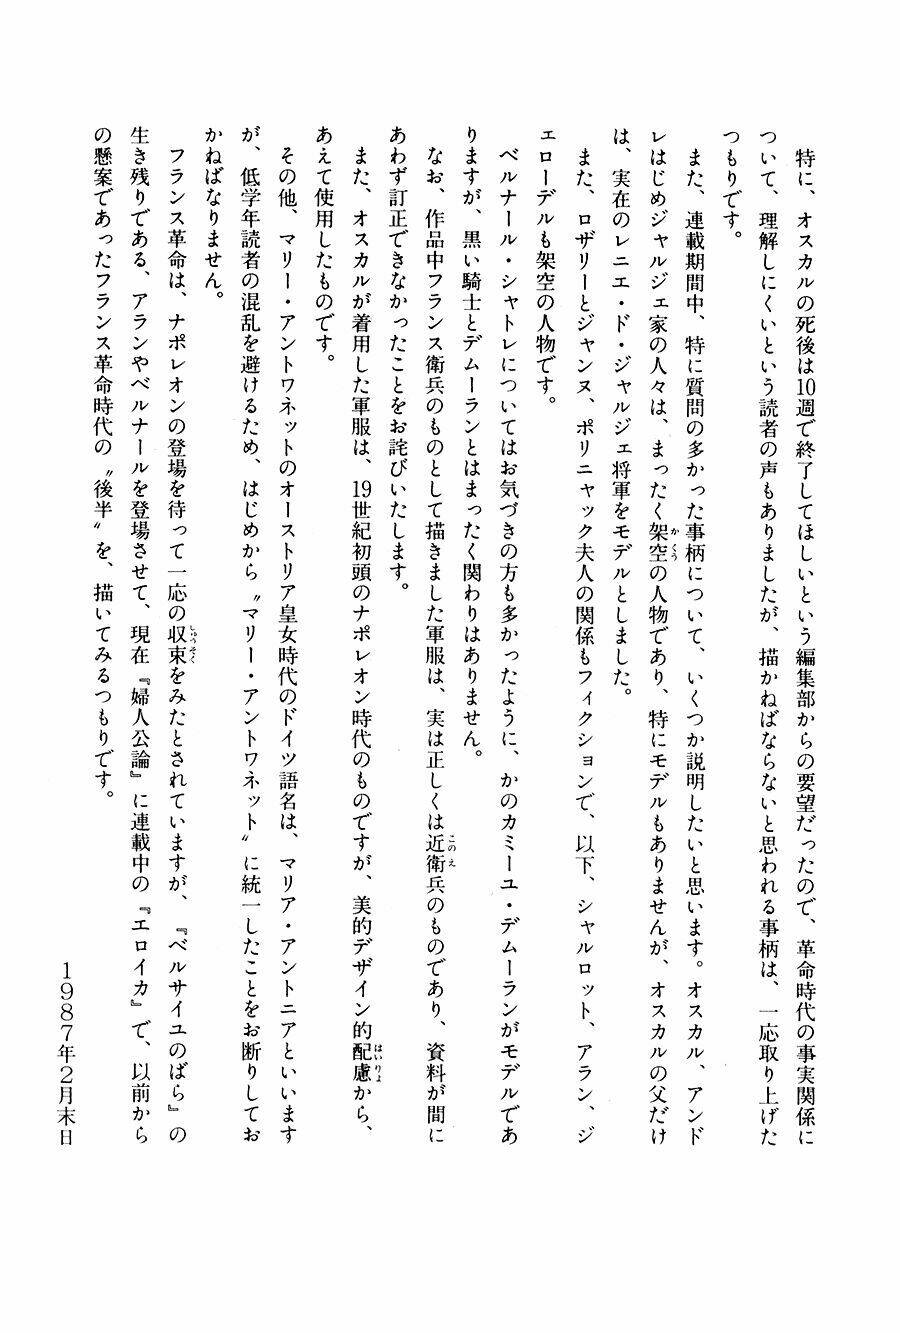 特に、オスカルの死後は10週で終了してほしいという編集部からの要望だったので、革命時代の事実関係に
ついて、理解しにくいという読者の声もありましたが、描かねばならないと思われる事柄は、一応取り上げた
つもりです。
また、連載期間中、特に質問の多かった事柄について、いくつか説明したいと思います。オスカル、アンド
レはじめジャルジェ家の人々は、まったく架空の人物であり、特にモデルもありませんが、オスカルの父だけ
は、実在のレニエ・ド・ジャルジェ将軍をモデルとしました。
また、ロザリーとジャンヌ、ポリニャック夫人の関係もフィクションで、以下、シャルロット、アラン、ジ
ェローデルも架空の人物です。
ベルナール・シャトレについてはお気づきの方も多かったように、かのカミーユ・デムーランがモデルであ
りますが、黒い騎士とデムーランとはまったく関わりはありません。
なお、作品中フランス衛兵のものとして描きました軍服は、実は正しくは近衛兵のものであり、資料が間に
あわず訂正できなかったことをお詫びいたします。
また、オスカルが着用した軍服は、19世紀初頭のナポレオン時代のものですが、美的デザイン的配慮から、
あえて使用したものです。
その他、マリー・アントワネットのオーストリア皇女時代のドイツ語名は、マリア・アントニアといいます
が、低学年読者の混乱を避けるため、はじめから〝マリー・アントワネット〟に統一したことをお断りしてお
かねばなりません。
フランス革命は、ナポレオンの登場を待って一応の収束をみたとされていますが、『ベルサイユのばら』の
生き残りである、アランやベルナールを登場させて、現在『婦人公論』に連載中の『エロイカ』で、以前から
の懸案であったフランス革命時代の〝後半〟を、描いてみるつもりです。
1987年2月末日